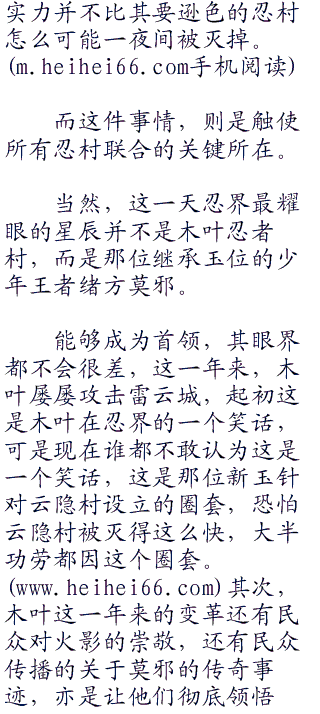 实力并不比其要逊色的忍村
怎么可能一夜间被灭掉。
(m.heihei66.com手机阅读)
而这件事情，则是触使
所有忍村联合的关键所在。
当然，这一天忍界最耀
眼的星辰并不是木叶忍者
村，而是那位继承玉位的少
年王者绪方莫邪。
能够成为首领，其眼界
都不会很差，这一年来，木
叶屡屡攻击雷云城，起初这
是木叶在忍界的一个笑话，
可是现在谁都不敢认为这是
一个笑话，这是那位新玉针
对云隐村设立的圈套，恐怕
云隐村被灭得这么快，大半
功劳都因这个圈套。
(www.heihei66.com)其次，
木叶这一年来的变革还有民
众对火影的崇敬，还有民众
传播的关于莫邪的传奇事
迹，亦是让他们彻底领悟